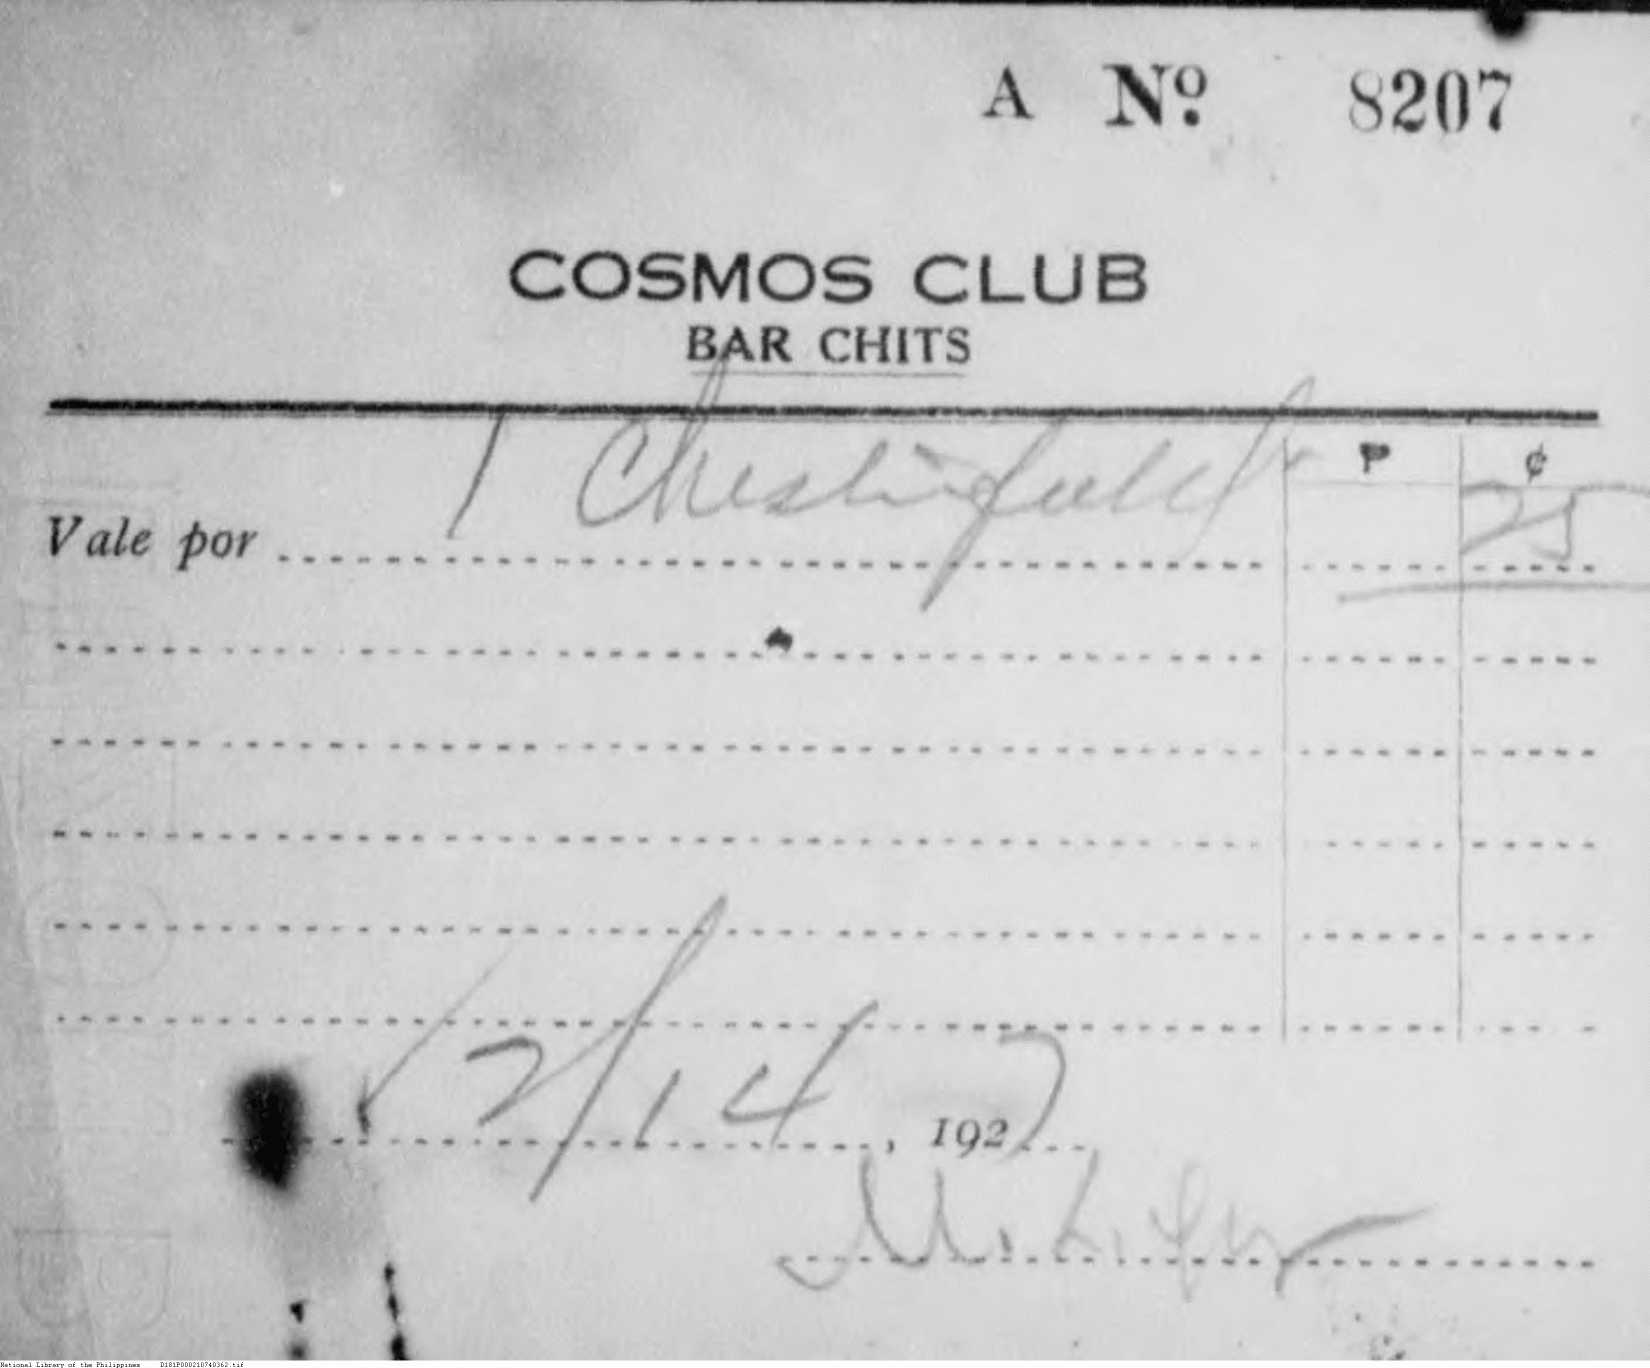 A Nº 8207
COSMOS CLUB
BAR CHITS
₱ ¢
Vale por 1 Chesterfield 25
2/14, 1927
National Library of the Philippines D181P000210740362.tif